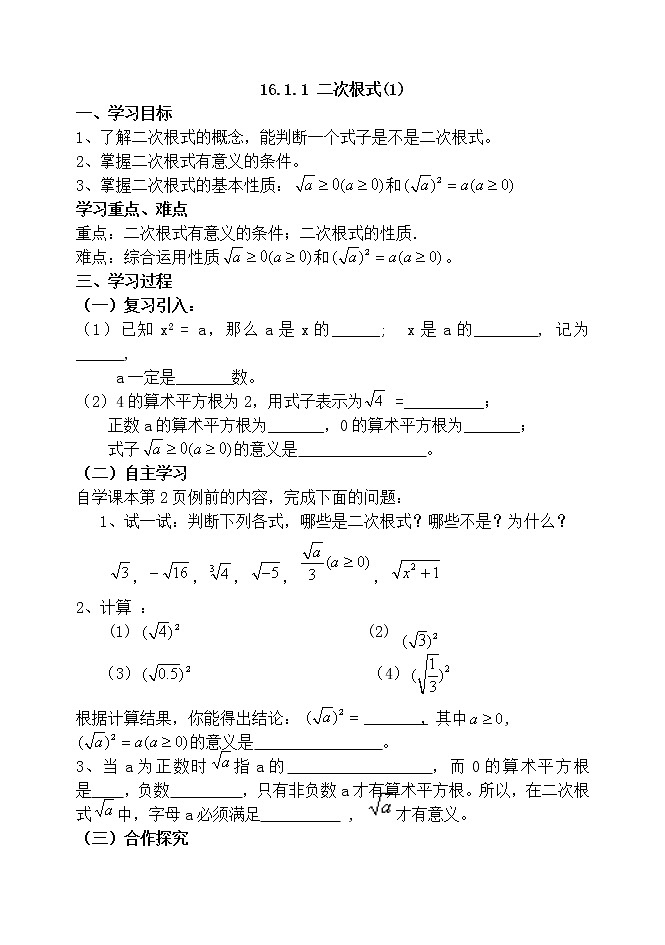 16.1.1 二次根式(1)
一、学习目标
1、了解二次根式的概念，能判断一个式子是不是二次根式。
2、掌握二次根式有意义的条件。
3、掌握二次根式的基本性质：√a ≥ 0(a ≥ 0)和(√a)² = a(a ≥ 0)
学习重点、难点
重点：二次根式有意义的条件；二次根式的性质.
难点：综合运用性质√a ≥ 0(a ≥ 0)和(√a)² = a(a ≥ 0)。
三、学习过程
（一）复习引入：
（1）已知 x² = a，那么 a 是 x 的______； x 是 a 的________, 记为
______,
a 一定是_______数。
（2）4 的算术平方根为 2，用式子表示为√4 =__________；
正数 a 的算术平方根为_______，0 的算术平方根为_______；
式子√a ≥ 0(a ≥ 0)的意义是________________。
（二）自主学习
自学课本第 2 页例前的内容，完成下面的问题：
1、试一试：判断下列各式，哪些是二次根式？哪些不是？为什么？
√3，−√16，∛4，√−5，√a/3 (a ≥ 0)，√x²+1
2、计算 ：
(1) (√4)² (2) (√3)²
（3）(√0.5)² （4）(√1/3)²
根据计算结果，你能得出结论：(√a)² = _______，其中a ≥ 0,
(√a)² = a(a ≥ 0)的意义是________________。
3、当 a 为正数时√a指 a 的__________________，而 0 的算术平方根
是____，负数_________，只有非负数 a 才有算术平方根。所以，在二次根
式√a中，字母 a 必须满足__________ , √a才有意义。
（三）合作探究